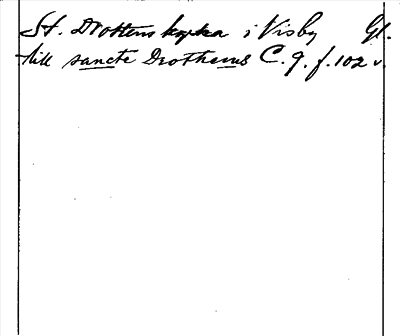 St. Drottens kyrka i Visby Gl.
till sancte Drothenus C. 9. f. 102 v.